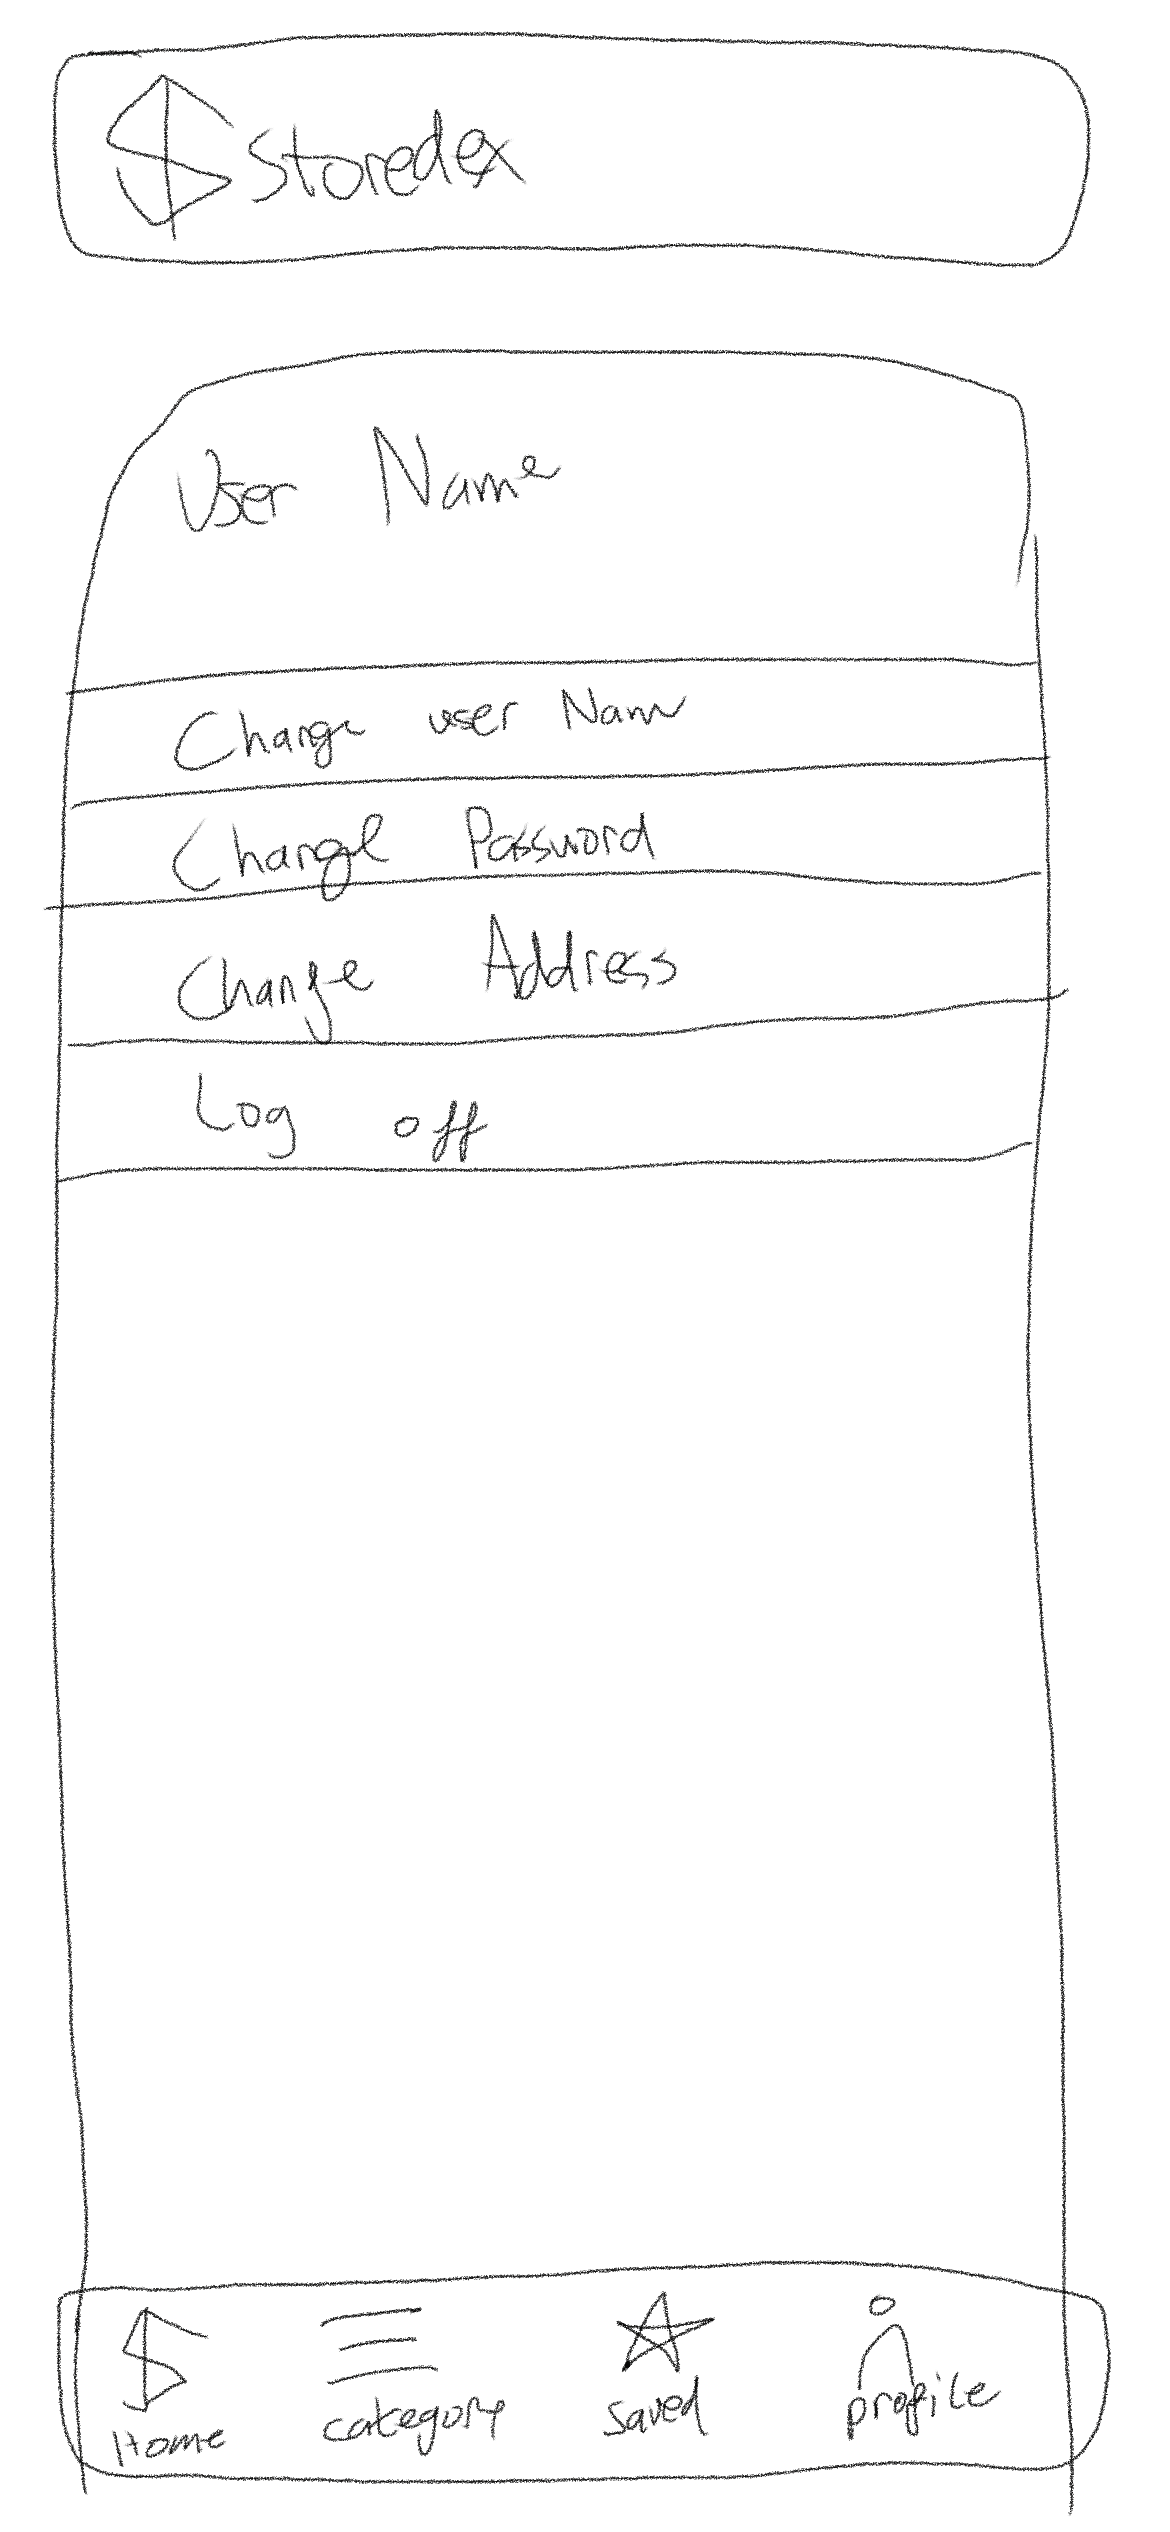 $ Storedex
User Name
Change user Nam
Change Password
Change Address
Log off
Home category saved profile